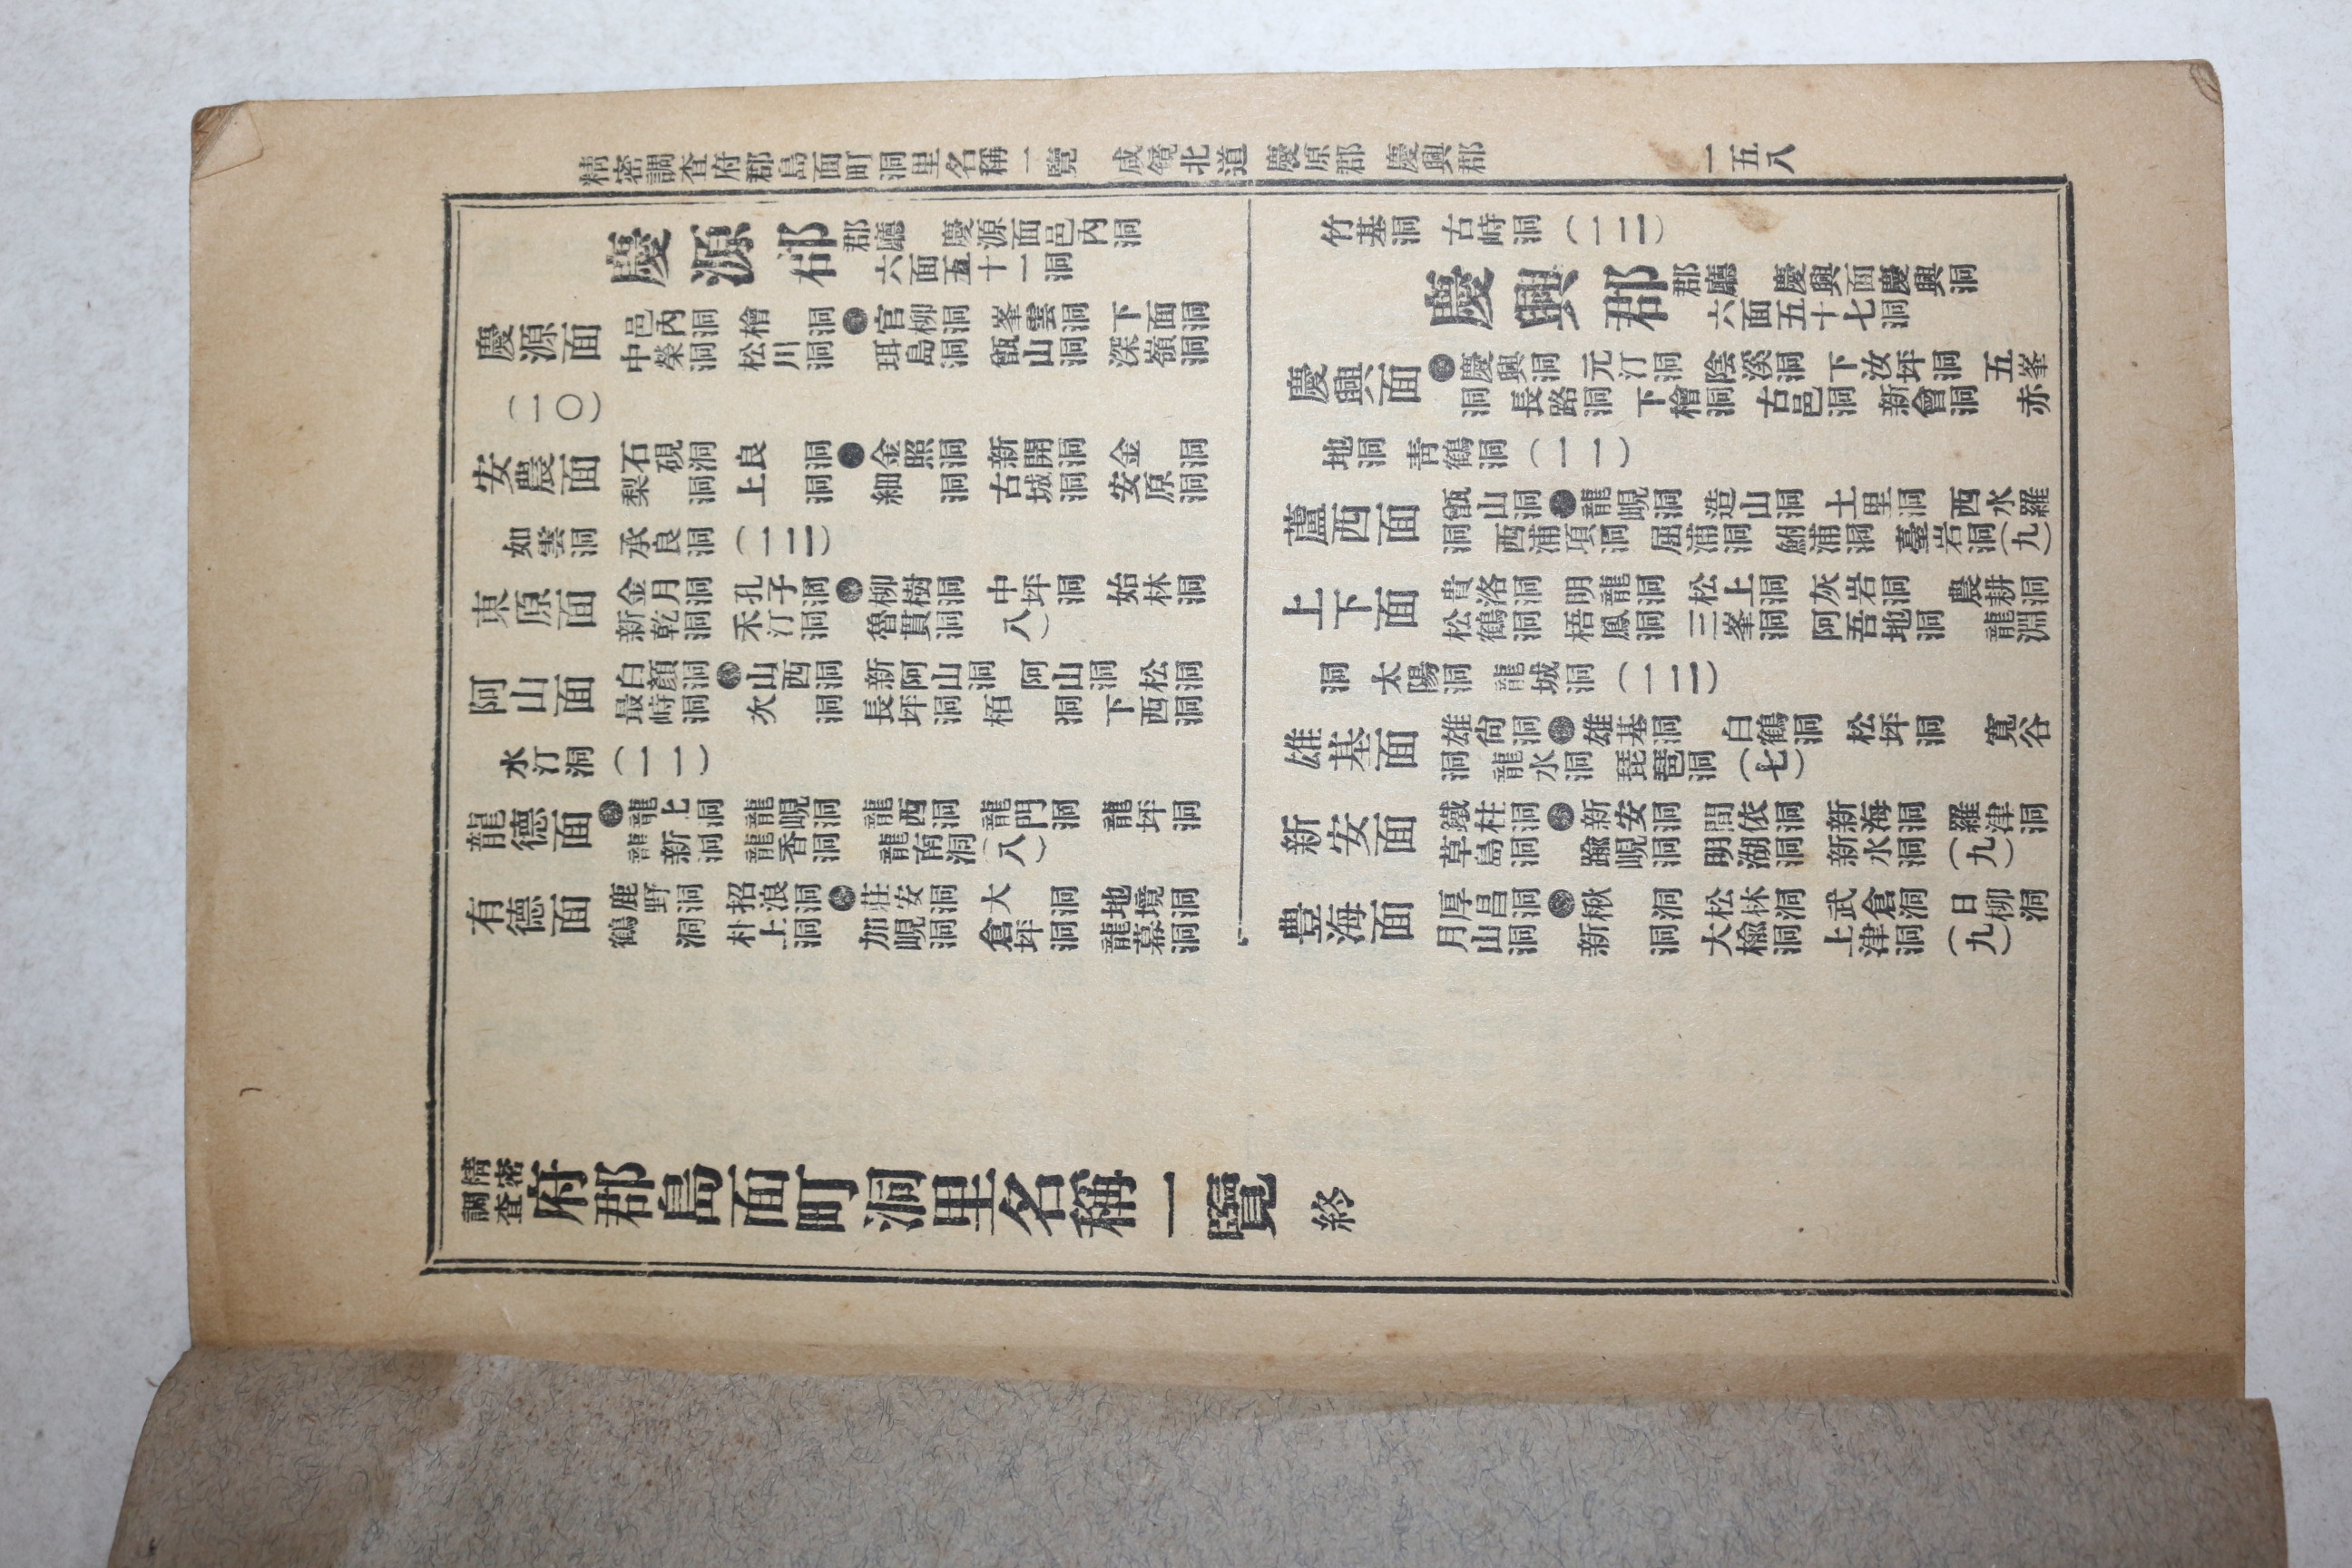 精密調查府郡島面町洞里名稱一覽 咸鏡北道 慶原郡 慶興郡 一五八
慶源郡 郡廳 慶源面邑內洞
六面五十一洞
慶源面 邑內洞 檜洞 官柳洞 峯雲洞 下面洞
中榮洞 松川洞 珥島洞 甑山洞 深嶺洞
(一〇)
安農面 石硯洞 良洞 金照洞 新開洞 金洞
梨洞 上洞 細洞 古城洞 安原洞
如雲洞 承良洞 (一二)
東原面 金月洞 孔子洞 柳樹洞 中坪洞 始林洞
新乾洞 禾汀洞 魯貫洞 (八)
阿山面 白顏洞 山西洞 新阿山洞 阿山洞 松洞
最峙洞 次洞 長坪洞 栢洞 下西洞
水汀洞 (一一)
龍德面 龍上洞 龍峴洞 龍西洞 龍門洞 龍坪洞
龍新洞 龍香洞 龍南洞 (八)
有德面 鹿野洞 招浪洞 莊安洞 大洞 地境洞
鶴洞 朴上洞 加峴洞 倉坪洞 龍幕洞
竹基洞 古峙洞 (一二)
慶興郡 郡廳 慶興面慶興洞
六面五十七洞
慶興面 慶興洞 元汀洞 陰溪洞 下汝坪洞 五峯
洞 長路洞 下檜洞 古邑洞 新會洞 赤
地洞 靑鶴洞 (一一)
蘆西面 甑山洞 龍峴洞 造山洞 土里洞 西水羅
洞 西浦項洞 屈浦洞 鮒浦洞 臺岩洞 (九)
上下面 貴洛洞 明龍洞 松上洞 灰岩洞 農耕洞
松鶴洞 梧鳳洞 三峯洞 阿吾地洞 龍淵
洞 太陽洞 龍城洞 (一二)
雄基面 雄尙洞 雄基洞 白鶴洞 松坪洞 寬谷
洞 龍水洞 琵琶洞 (七)
新安面 鐵柱洞 新安洞 間依洞 新海洞 羅津洞
草島洞 踰峴洞 明湖洞 新水洞 (九)
豊海面 厚昌洞 楸洞 松林洞 武倉洞 日柳洞
月山洞 新洞 大楡洞 上津洞 (九)
精密調查 府郡島面町洞里名稱一覽 終